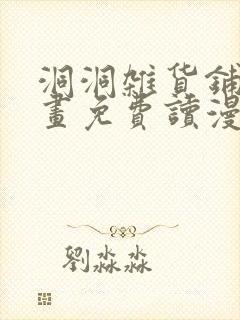 洞洞雜货鋪
畫免費讀漫
劉淼淼